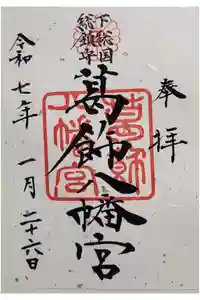 奉拝
下総国
総鎮守
葛飾八幡宮
令和七年一月二十六日